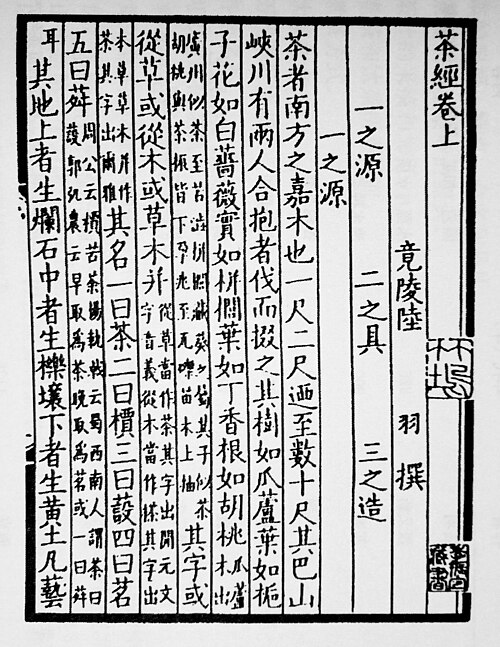 茶經卷上
竟陵陸 羽 撰
一之源 二之具 三之造
一之源
茶者南方之嘉木也一尺二尺迺至數十尺其巴山
峽川有兩人合抱者伐而掇之其樹如瓜蘆葉如梔
子花如白薔薇實如栟櫚葉如丁香根如胡桃瓜蘆木出
廣州似茶至苦澁栟櫚葵之其子似茶胡桃與茶根皆下孕兆至瓦礫苗木上抽其字或
從草或從木或草木并從草當作茶其字出開元文字音義從木當作搽其字出
本草草木并作茶其字出爾雅其名一曰茶二曰檟三曰蔎四曰茗
五曰荈周公云檟苦茶揚執戟云蜀西南人謂茶曰蔎郭弘農云早取為茶晚取為茗或一曰荈
耳其地上者生爛石中者生櫟壤下者生黃土凡藝
藏書